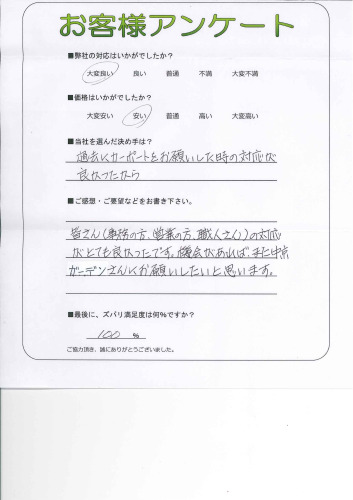 お客様アンケート
■弊社の対応はいかがでしたか?
大変良い 良い 普通 不満 大変不満
■価格はいかがでしたか?
大変安い 安い 普通 高い 大変高い
■当社を選んだ決め手は?
過去にカーポートをお願いした時の対応が
良かったから
■ご感想・ご要望などをお書き下さい。
皆さん(事務の方、営業の方、職人さん)の対応
がとても良かったです。機会があれば、また中京
ガーデンさんにお願いしたいと思います。
■最後に、ズバリ満足度は何%ですか?
100 %
ご協力頂き、誠にありがとうございました。